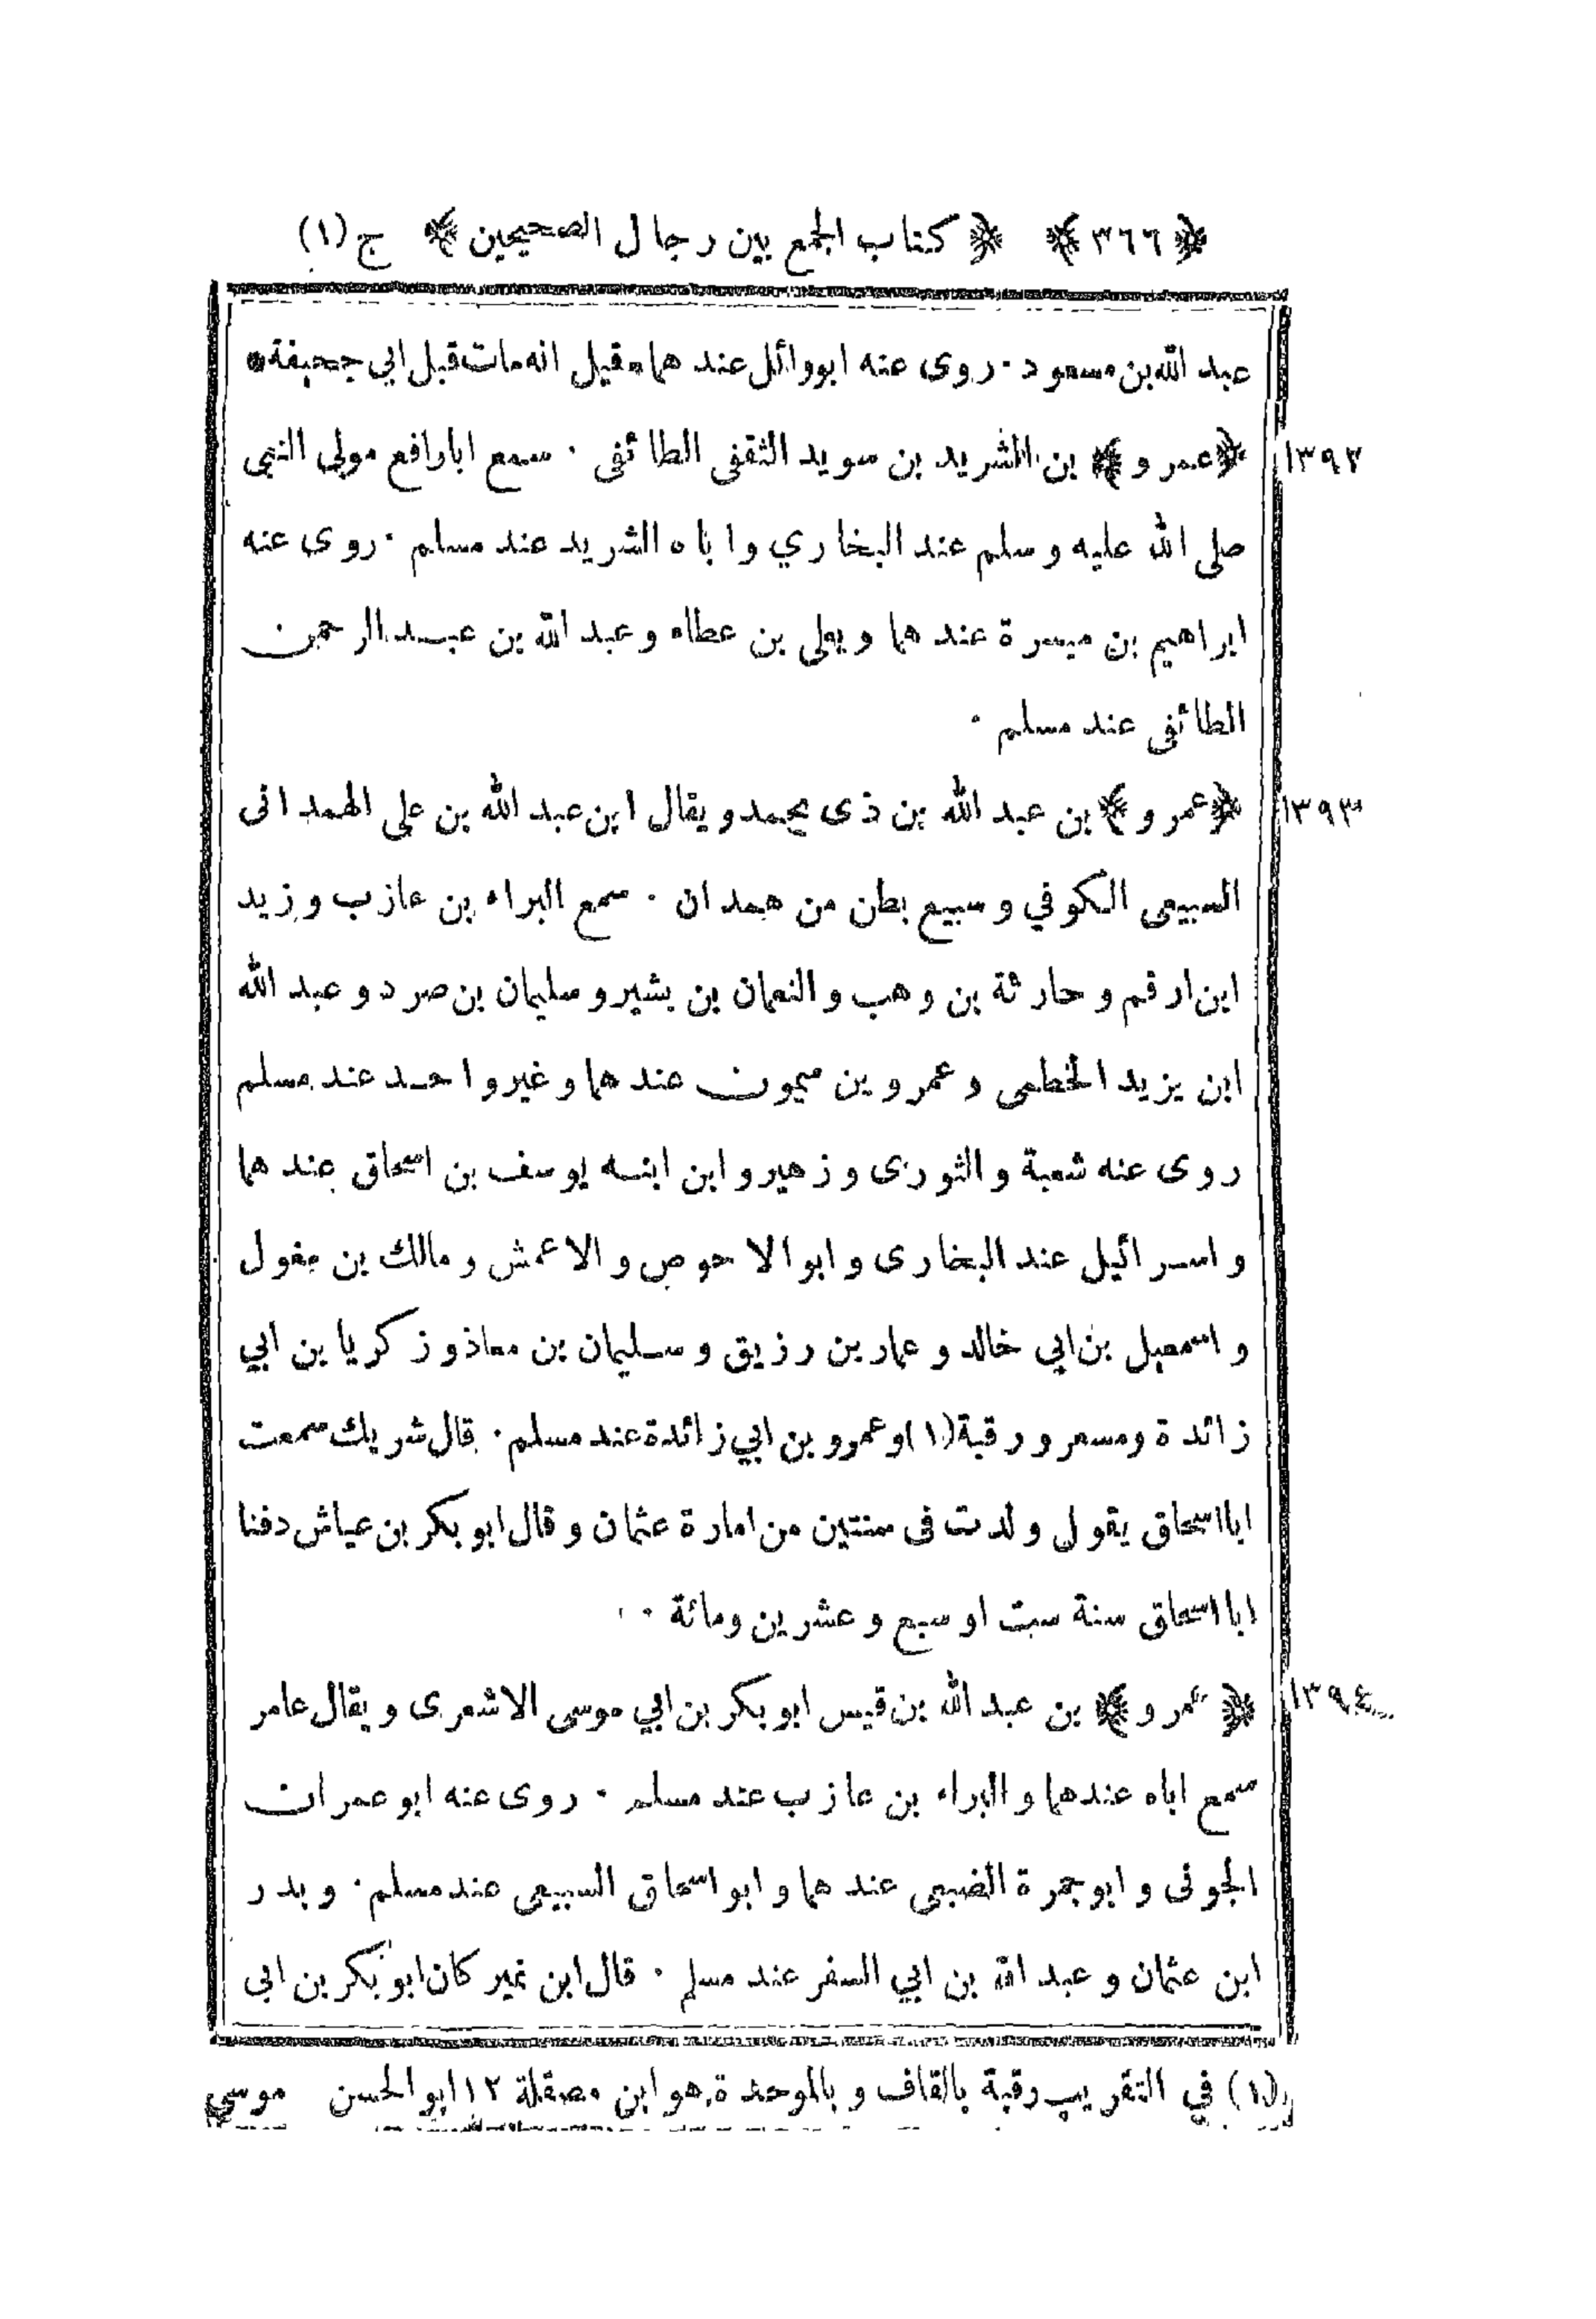 ﴿٣٦٦﴾ ﴿كتاب الجمع بين رجال الصحيحين﴾ ج (١)
عبد الله بن مسعود · روى عنه ابووائل عندهما ٠ قيل انه مات قبل ابي جحيفة *
١٣٩٢ ﴿عمرو﴾ بن الشريد بن سويد الثقفى الطائفى · سمع ابارافع مولى النبى
صلى الله عليه وسلم عند البخاري واباه الشريد عند مسلم · روى عنه
ابراهيم بن ميسرة عندهما ويعلى بن عطاء وعبد الله بن عبد الرحمن
الطائفى عند مسلم ·
١٣٩٣ ﴿عمرو﴾ بن عبد الله بن ذى يحمد ويقال ابن عبد الله بن على الهمدانى
السبيعى الكوفي وسبيع بطن من همدان · سمع البراء بن عازب وزيد
ابن ارقم وحارثة بن وهب والنعمان بن بشير وسليمان بن صرد وعبد الله
ابن يزيد الخطمى وعمرو بن ميمون عندهما وغير واحد عند مسلم
روى عنه شعبة والثورى وزهير وابن ابنه يوسف بن اسحاق عندهما
واسرائيل عند البخارى وابو الاحوص والاعمش ومالك بن مغول
واسمعيل بن ابي خالد وعمار بن رزيق وسليمان بن معاذ وزكريا بن ابي
زائدة ومسعر ورقبة (١) وعمرو بن ابي زائدة عند مسلم · قال شريك سمعت
ابا اسحاق يقول ولدت فى سنتين من امارة عثمان وقال ابو بكر بن عياش دفنا
ابا اسحاق سنة ست او سبع وعشرين ومائة ·
١٣٩٤ ﴿عمرو﴾ بن عبد الله بن قيس ابو بكر بن ابي موسى الاشعرى ويقال عامر
سمع اباه عندهما والبراء بن عازب عند مسلم · روى عنه ابو عمران
الجونى وابو جمرة الضبعى عندهما وابو اسحاق السبيعى عند مسلم · وبدر
ابن عثمان وعبد الله بن ابي السفر عند مسلم · قال ابن نمير كان ابو بكر بن ابى
(١) في التقريب رقبة بالقاف وبالموحدة هو ابن مصقلة ١٢ ابو الحسن موسى